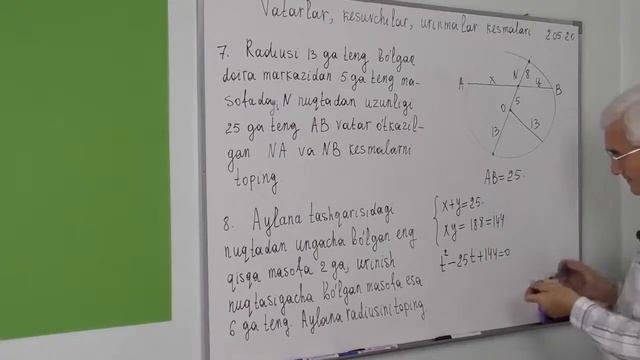 Vatarlar, kesuvchilar, urinmalar kesmalari 2.05.20
7. Radiusi 13 ga teng bo'lgan
doira markazidan 5 ga teng ma-
sofadagi N nuqtadan uzunligi
25 ga teng AB vatar o'tkazil-
gan NA va NB kesmalarni
toping
8. Aylana tashqarisidagi
nuqtadan ungacha bo'lgan eng
qisqa masofa 2 ga, urinish
nuqtasigacha bo'lgan masofa esa
6 ga teng. Aylana radiusini toping
A x N 8 y B
O 5
13 13
AB=25.
x+y=25.
xy=18·8=144
t²-25t+144=0